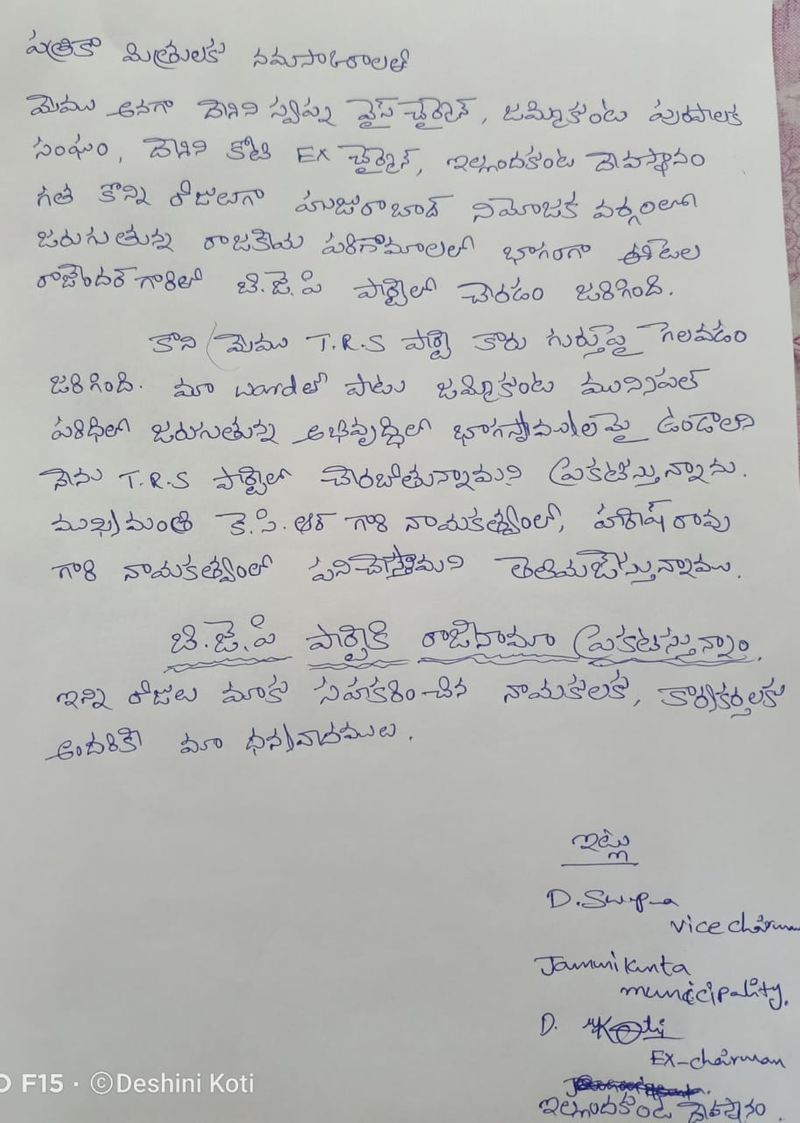 పత్రికా మిత్రులకు నమస్కారాలతో
మేము అనగా దేశిని స్వప్న వైస్ చైర్మెన్, జమ్మికుంట పురపాలక
సంఘం, దేశిని కోటి EX చైర్మెన్, ఇల్లందకుంట దేవస్థానం
గత కొన్ని రోజులుగా హుజురాబాద్ నియోజక వర్గంలో
జరుగుతున్న రాజకీయ పరిణామాలలో భాగంగా ఈటెల
రాజేందర్ గారితో బి.జె.పి పార్టీలో చేరడం జరిగింది.
కాని మేము T.R.S పార్టీ కారు గుర్తుపై గెలవడం
జరిగింది. మా ward తో పాటు జమ్మికుంట మునిసిపల్
పరిధిలో జరుగుతున్న అభివృద్ధిలో భాగస్వాములమై ఉండాలని
నేను T.R.S పార్టీలో చేరబోతున్నామని ప్రకటిస్తున్నాను.
ముఖ్యమంత్రి కె.సి.ఆర్ గారి నాయకత్వంలో, హరీష్ రావు
గారి నాయకత్వంలో పనిచేస్తామని తెలియజేస్తున్నాము.
బి.జె.పి పార్టీకి రాజీనామా ప్రకటిస్తున్నాం.
ఇన్ని రోజులు మాకు సహకరించిన నాయకులకు, కార్యకర్తలకు
అందరికీ మా ధన్యవాదములు.
ఇట్లు
D. Swapna
vice chairman
Jammikunta
municipality.
D. Koti
EX-chairman
ఇల్లందకుంట దేవస్థానం.
F15 · ©Deshini Koti